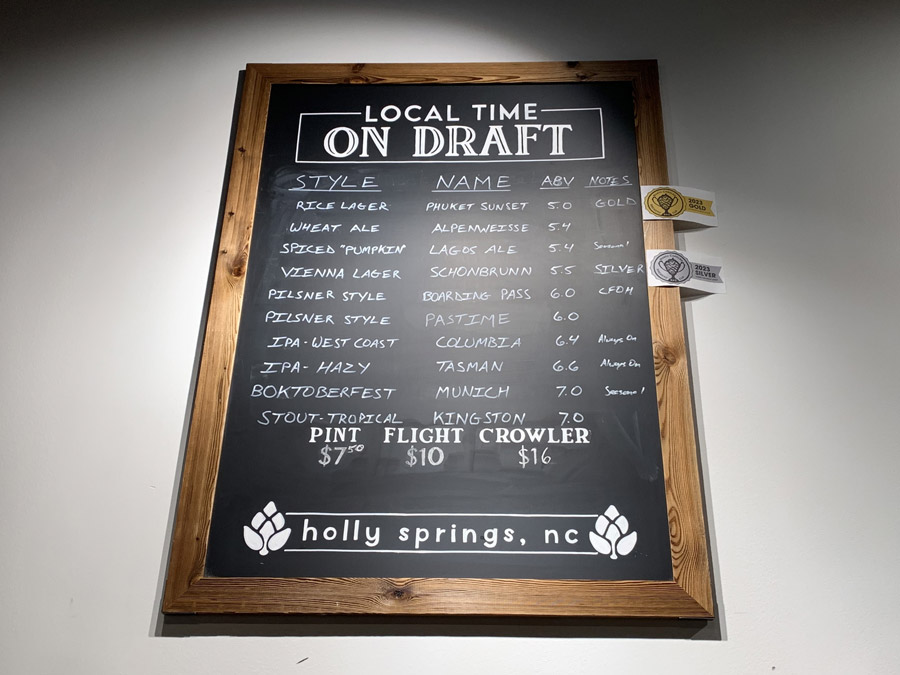 LOCAL TIME
ON DRAFT
STYLE NAME ABV NOTES
RICE LAGER PHUKET SUNSET 5.0 GOLD
WHEAT ALE ALPENWEISSE 5.4
SPICED "PUMPKIN" LAGOS ALE 5.4 Seasonal
VIENNA LAGER SCHONBRUNN 5.5 SILVER
PILSNER STYLE BOARDING PASS 6.0 CFOM
PILSNER STYLE PASTIME 6.0
IPA-WEST COAST COLUMBIA 6.4 Always On
IPA- HAZY TASMAN 6.6 Always On
BOKTOBERFEST MUNICH 7.0 Seesonal
STOUT-TROPICAL KINGSTON 7.0
PINT FLIGHT CROWLER
$7.50 $10 $16
holly springs, nc
2023
GOLD
2023
SILVER